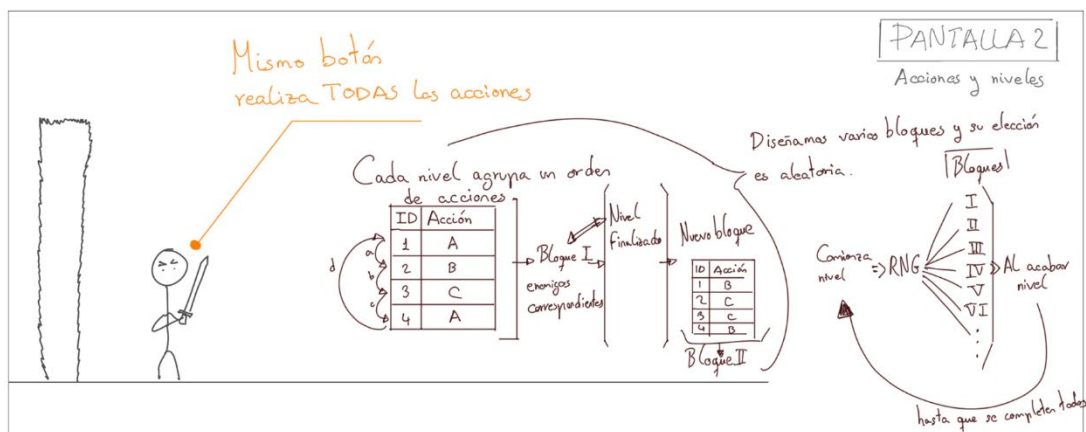 PANTALLA 2
Acciones y niveles
Mismo botón
realiza TODAS las acciones
Cada nivel agrupa un orden
de acciones
ID Acción
1 A
2 B
3 C
4 A
a
b
c
d
Bloque I
enemigos
correspondientes
Nivel
finalizado
Nuevo bloque
ID Acción
1 B
2 C
3 C
4 B
Bloque II
Diseñamos varios bloques y su elección
es aleatoria.
Bloques
I
II
III
IV
V
VI
Comienza
nivel
RNG
Al acabar
nivel
hasta que se completen todos